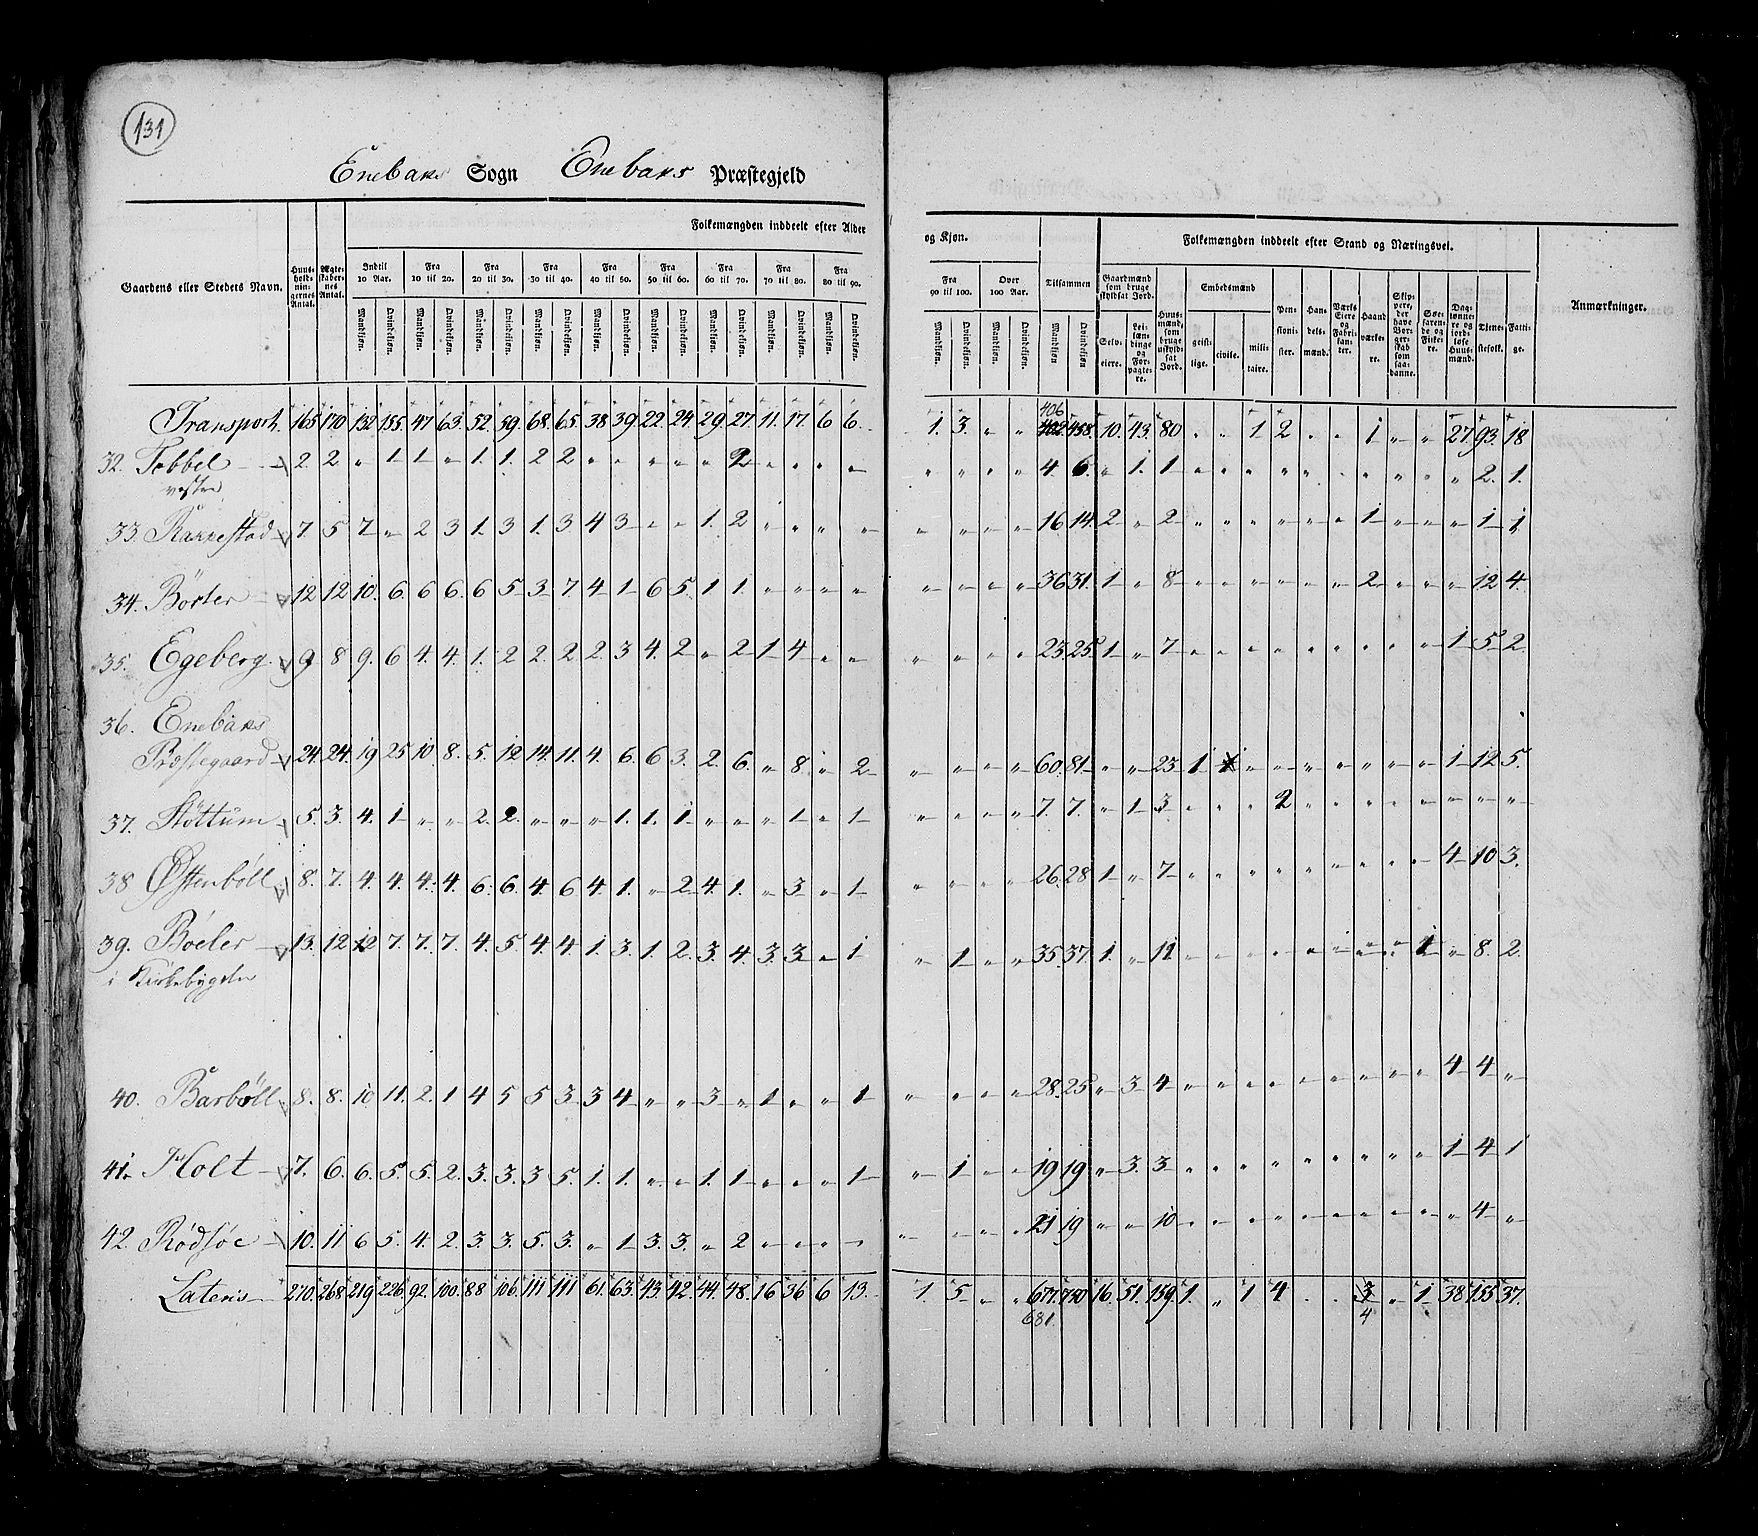 131
Enebaks Sogn Enebaks Præstegjeld
Folkemængden inddeelt efter Alder og Kjøn. Folkemængden inddeelt efter Stand og Næringsvei.
Gaardens eller Stedets Navn. Huus-holdnin-gernes Antal. Ægte-skaber-nes Antal. Indtil 10 Aar. Fra 10 til 20. Fra 20 til 30. Fra 30 til 40. Fra 40 til 50. Fra 50 til 60. Fra 60 til 70. Fra 70 til 80. Fra 80 til 90. Fra 90 til 100. Over 100 Aar. Tilsammen Gaardmænd som bruge skyldsat Jord. Huus-mænd, som bruge uskyld-sat Jord. Embedsmænd Pen-sioni-ster. Han-dels-mænd. Værks Eiere og Fabri-kan-ter. Haand-værke-re. Skip-pere, der have Bor-ger-skab som saa-danne. Søe-faren-de og Fiske-re. Dag-lønne-re og jord-løse Huus-mænd. Tiene-stefolk. Fatti-ge. Anmærkninger.
Mandkiøn. Qvindekiøn. Mandkiøn. Qvindekiøn. Mandkiøn. Qvindekiøn. Mandkiøn. Qvindekiøn. Mandkiøn. Qvindekiøn. Mandkiøn. Qvindekiøn. Mandkiøn. Qvindekiøn. Mandkiøn. Qvindekiøn. Mandkiøn. Qvindekiøn. Mandkiøn. Qvindekiøn. Mandkiøn. Qvindekiøn. Mandkiøn Qvindekiøn Selv-eiere. Lei-læn-dinge og For-pagte-re. geist-lige. civile. mili-taire.
406
Transport. 165 170 132 155. 47 63. 52. 59. 68. 65. 38 39 22. 24. 29. 27 11. 17. 6 6. 1. 3. " " 402 458. 10. 43. 80 " " 1 2 " " 1 " " 27. 93. 18
32. Tobbel 2. 2 " 1 1 " 1. 1. 2 2 " " " " " 2 " " " " " " " " 4. 6. " 1. 1 " " " " " " " " " " 2. 1.
vestre
33. Rakkestad 7. 5 7 " 2 3 1. 3 1. 3 4 3 " " 1. 2 " " " " " " " " 16 14. 2 " 2 " " " " " " 1 " " " 1 1
34. Börter 12 12 10. 6. 6 6. 6 5 3. 7 4 1 6 5. 1 1. " " " " " " " " 36 31. 1 " 8 " " " " " " 2 " " " 12 4.
35. Egeberg 9 8 9. 6 4. 4. 1. 2 2. 2 2. 3 4. 2 " 2 1 4 " " " " " " 23. 25. 1 " 7 " " " " " " " " " 1 5 2
36. Enebaks
Præstegaard 24. 24. 19 25 10 8. 5. 12 14. 11. 4. 6. 6 3. 2. 6. " 8. " 2 " " " " 60. 81 " " 23 1 1 " " " " " " " 1 12 5.
37. Stöttum 5. 3. 4. 1 " " 2. 2. " " " 1. 1. 1 " " " 1 " 1 " " " " 7. 7. " 1 3 " " " 2 " " " " " " " "
38 Østenböll 8. 7. 4. 4. 4. 4. 6. 6. 4. 6 4. 1. " 2 4. 1. " 3 " 1 " " " " 26. 28 1 " 7 " " " " " " " " " 4 10 3.
39. Boeler 13. 12 12 7. 7. 7. 4. 5. 4. 4. 1. 3. 1. 2. 3. 4. 3. 3 " 1 " 1 " " 35. 37 1. " 11 " " " " " " " " 1 " 8. 2.
i Kirkebygden
40. Barböll 8. 8. 10 11. 2. 1 4 5 5 3 3 4 " " 3 " 1 " " 1 " " " " 28. 25 " 3 4 " " " " " " " " " 4 4 "
41. Holt 7. 6. 6. 5. 5. 2. 3. 3. 3 5. 1. 1. " " 1. 1 " " " 1 " 1 " " 19 19 " 3. 3 " " " " " " " " " 1 4 1
42. Rödsöe 10. 11 6 5. 4. 2. 3. 3. 5. 3. " 1 3. 3. " 2 " " " " " " " " 21 19 " " 10 " " " " " " " " " " 4 "
Lateris 210. 268 219 226. 92. 100. 88 106. 111 111 61. 63. 43 42. 44. 48. 16 36 6 13. 1 5 " " 677. 750 16. 51. 159. 1. " 1 4. " " 3 " 1 38 155 37.
681. 4